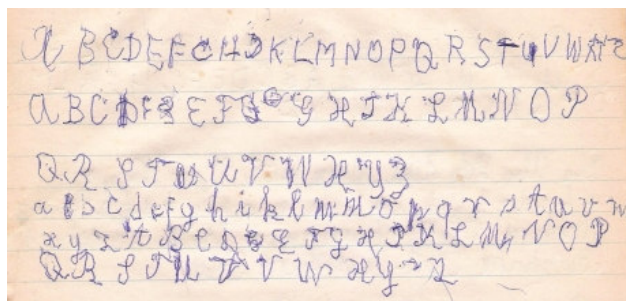 A B C D E F G H I K L M N O P Q R S T U V W X Y Z
A B C D E F G H I K L M N O P
Q R S T U U V W X Y Z
a b c d e f g h i k l m n o p q r s t u v w
x y z A B C D E F G H I K L M N O P
Q R S T U V V W X Y Z